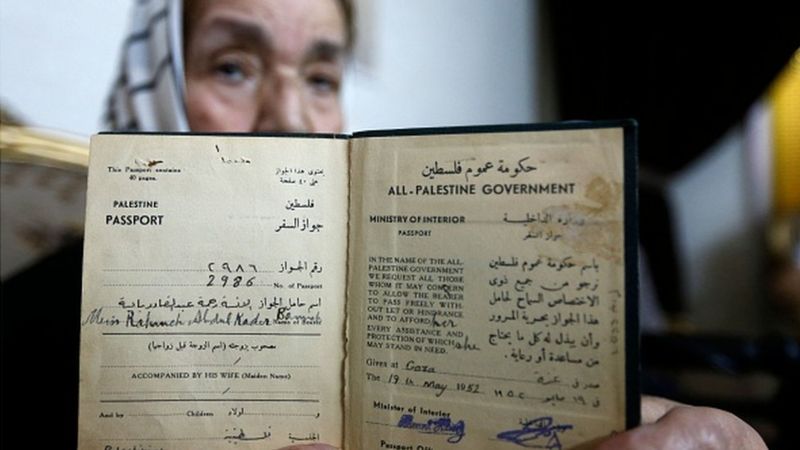 This Passport contains
40 pages.
يحتوى هذا الجواز
على ٤٠ صفحة
PALESTINE
PASSPORT
فلسطين
جواز السفر
رقم الجواز
٢٩٨٦
2986
No. of Passport
اسم حامل الجواز
Miss Abdul Kader
Name of Bearer
مصحوب بزوجته (اسم الزوجة قبل زواجها)
ACCOMPANIED BY HIS WIFE (Maiden Name)
And by
Children
و
اولاد
الجنسية فلسطينية
حكومة عموم فلسطين
ALL-PALESTINE GOVERNMENT
MINISTRY OF INTERIOR
PASSPORT
وزارة الداخلية
جواز السفر
IN THE NAME OF THE ALL-
PALESTINE GOVERNMENT
WE REQUEST ALL THOSE
WHOM IT MAY CONCERN
TO ALLOW THE BEARER
TO PASS FREELY WITH-
OUT LET OR HINDRANCE
AND TO AFFORD her
EVERY ASSISTANCE AND
PROTECTION OF WHICH she
MAY STAND IN NEED.
باسم حكومة عموم فلسطين
نرجو من جميع ذوى
الاختصاص السماح لحامل
هذا الجواز بحرية المرور
وأن يبذل له كل ما يحتاج
من مساعدة أو رعاية.
Given at Gaza
صدر فى غزة
The 19th May 1952
فى ١٩ مايو ١٩٥٢
Minister of Interior
Passport